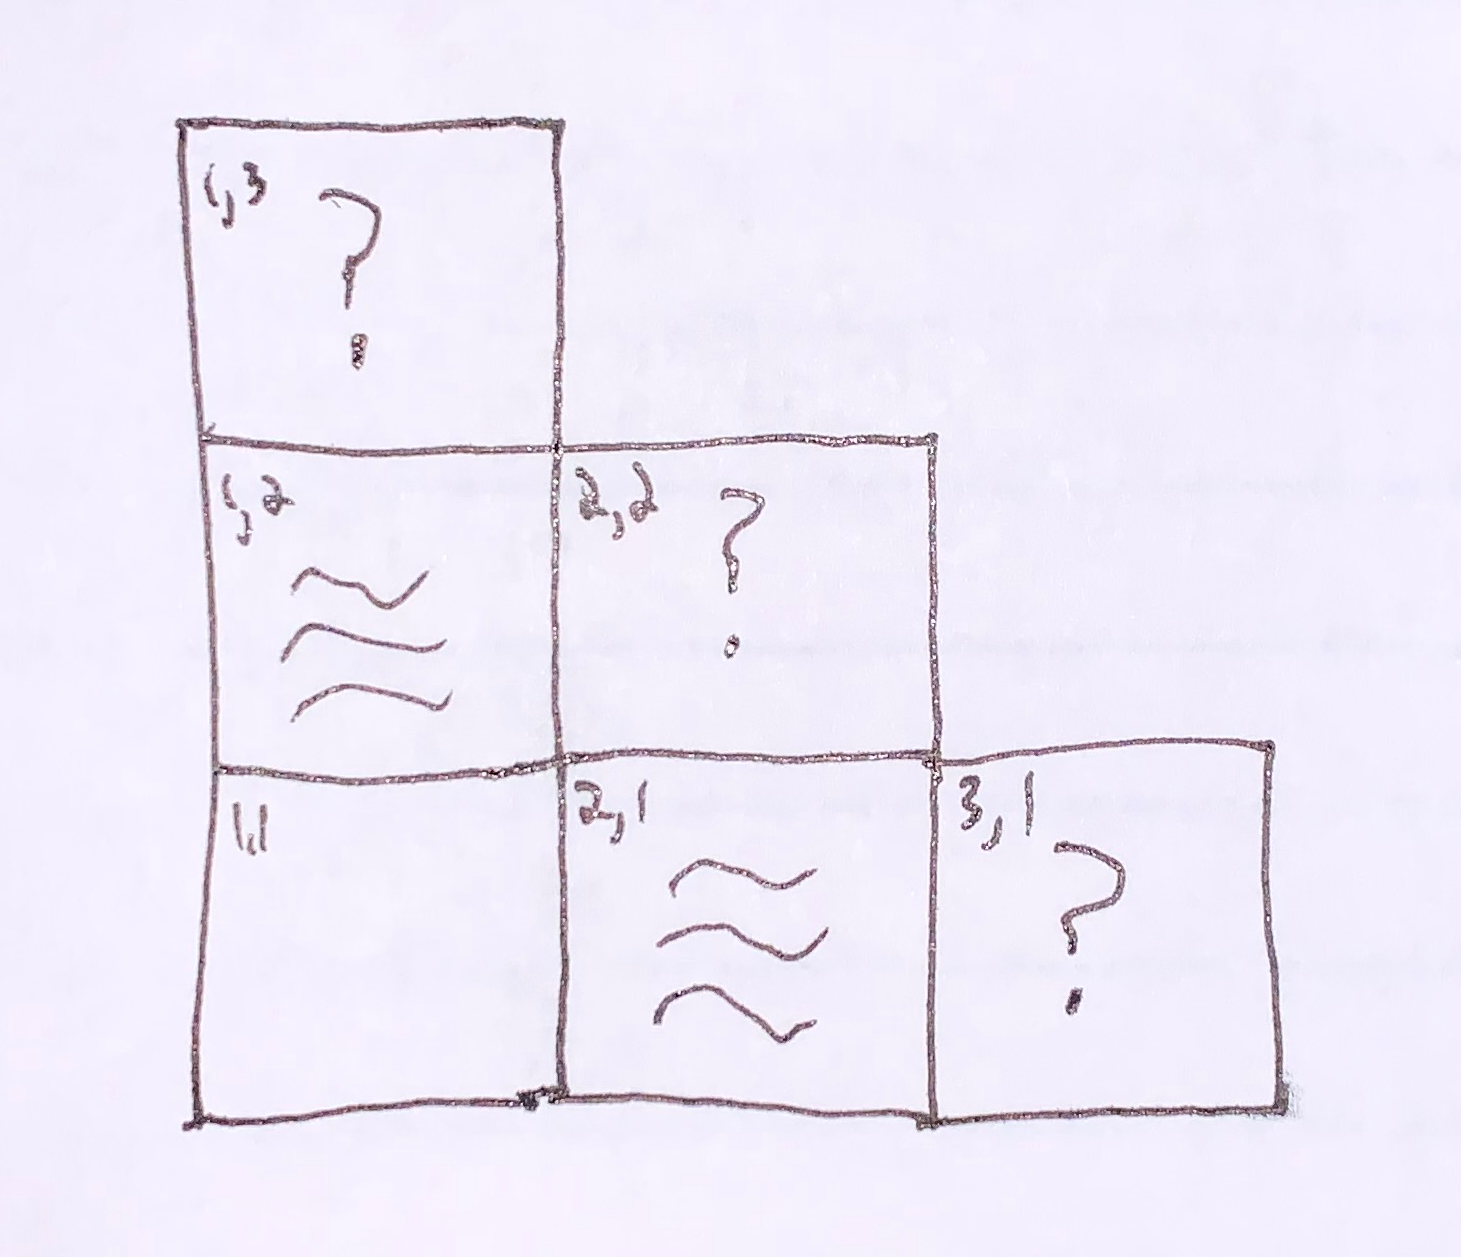 1,3 ?
1,2
2,2 ?
1,1
2,1
3,1 ?